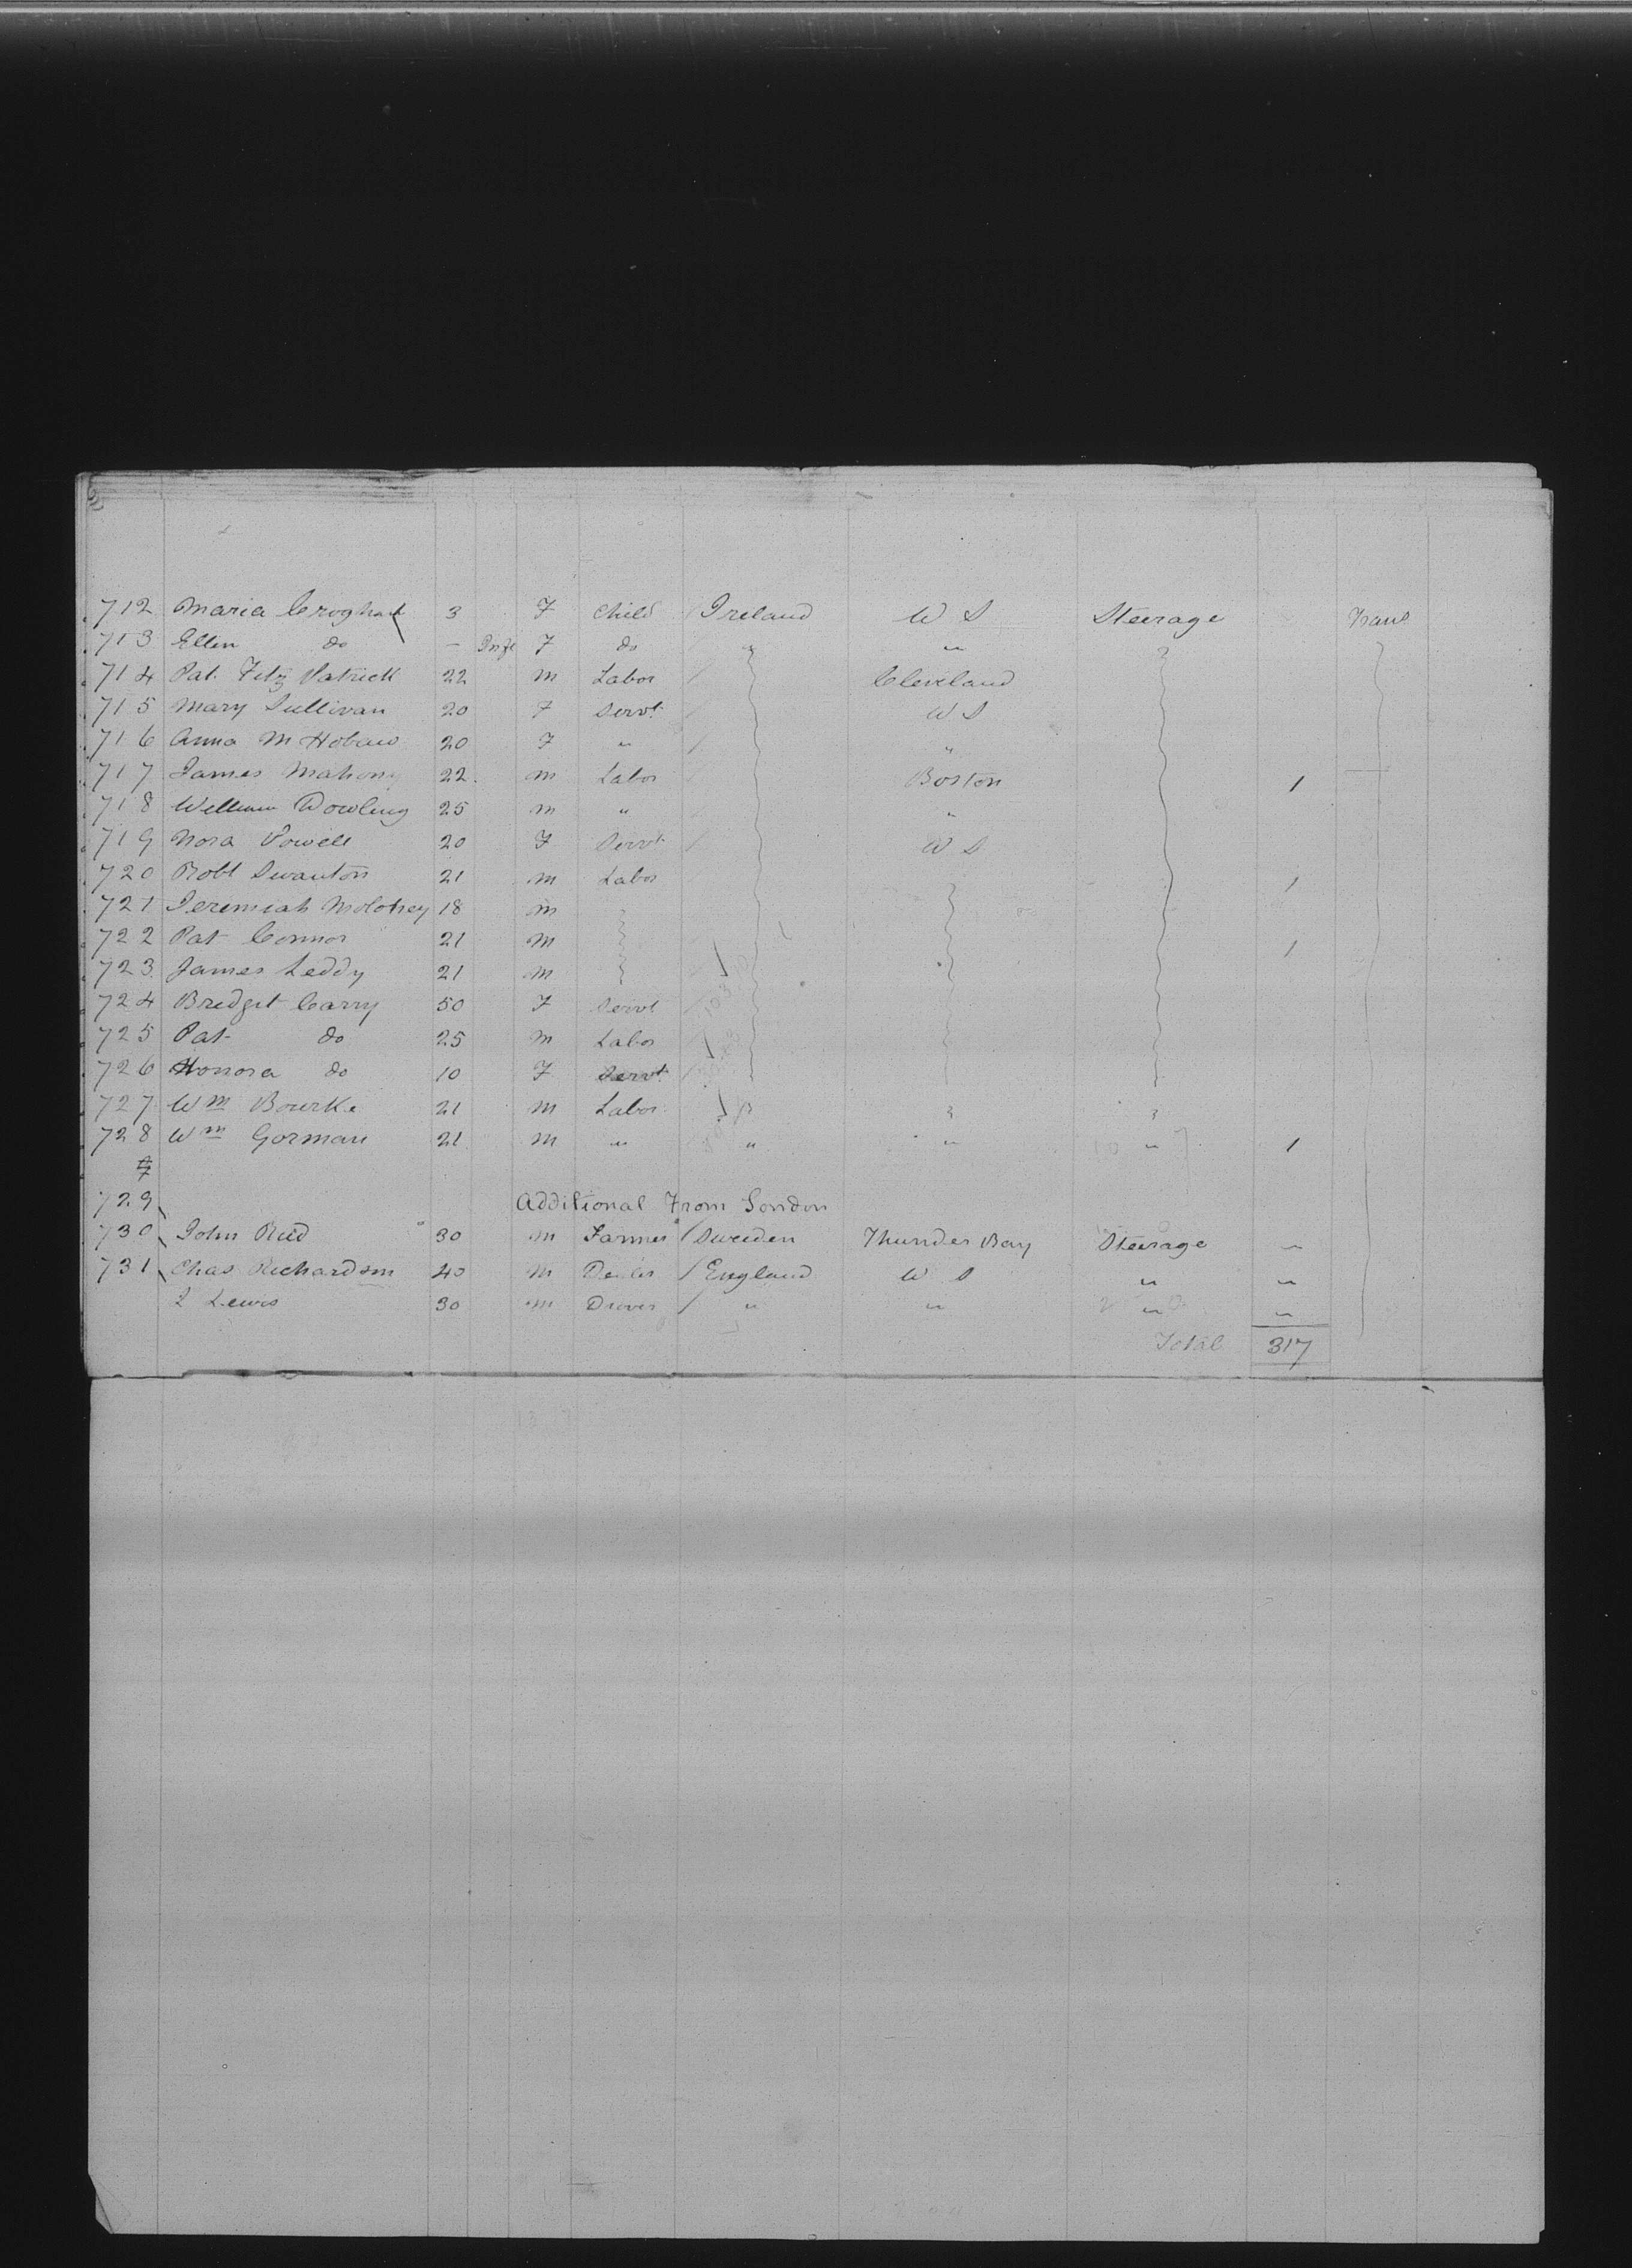 712 Maria Croghan 3 F Child Ireland W S Steerage
713 Ellen do - Inft F do " "
714 Pat. Fitz Patrick 22 m Labor Cleveland
715 Mary Sullivan 20 F Servt W S
716 Anna M 20 F " "
717 James Mahony 22 m Labor Boston 1
718 William Dowling 25 m " "
719 Nora Powell 20 F Servt W S
720 Robt Swanton 21 m Labor 1
721 Jeremiah 18 m
722 Pat Connor 21 m 1
723 James Leddy 21 m
724 Bridget Carry 50 F Servt
725 Pat do 25 m Labor
726 Honora do 10 F Servt
727 Wm Bourke 21 m Labor
728 Wm Gorman 21 m " " " " 1
729
Additional From London
730 John Reed 30 m Farmer Sweden Thunder Bay Steerage "
731 Chas Richardson 40 m Dealer England W S " "
Lewis 30 m Drover " " " "
Total 317